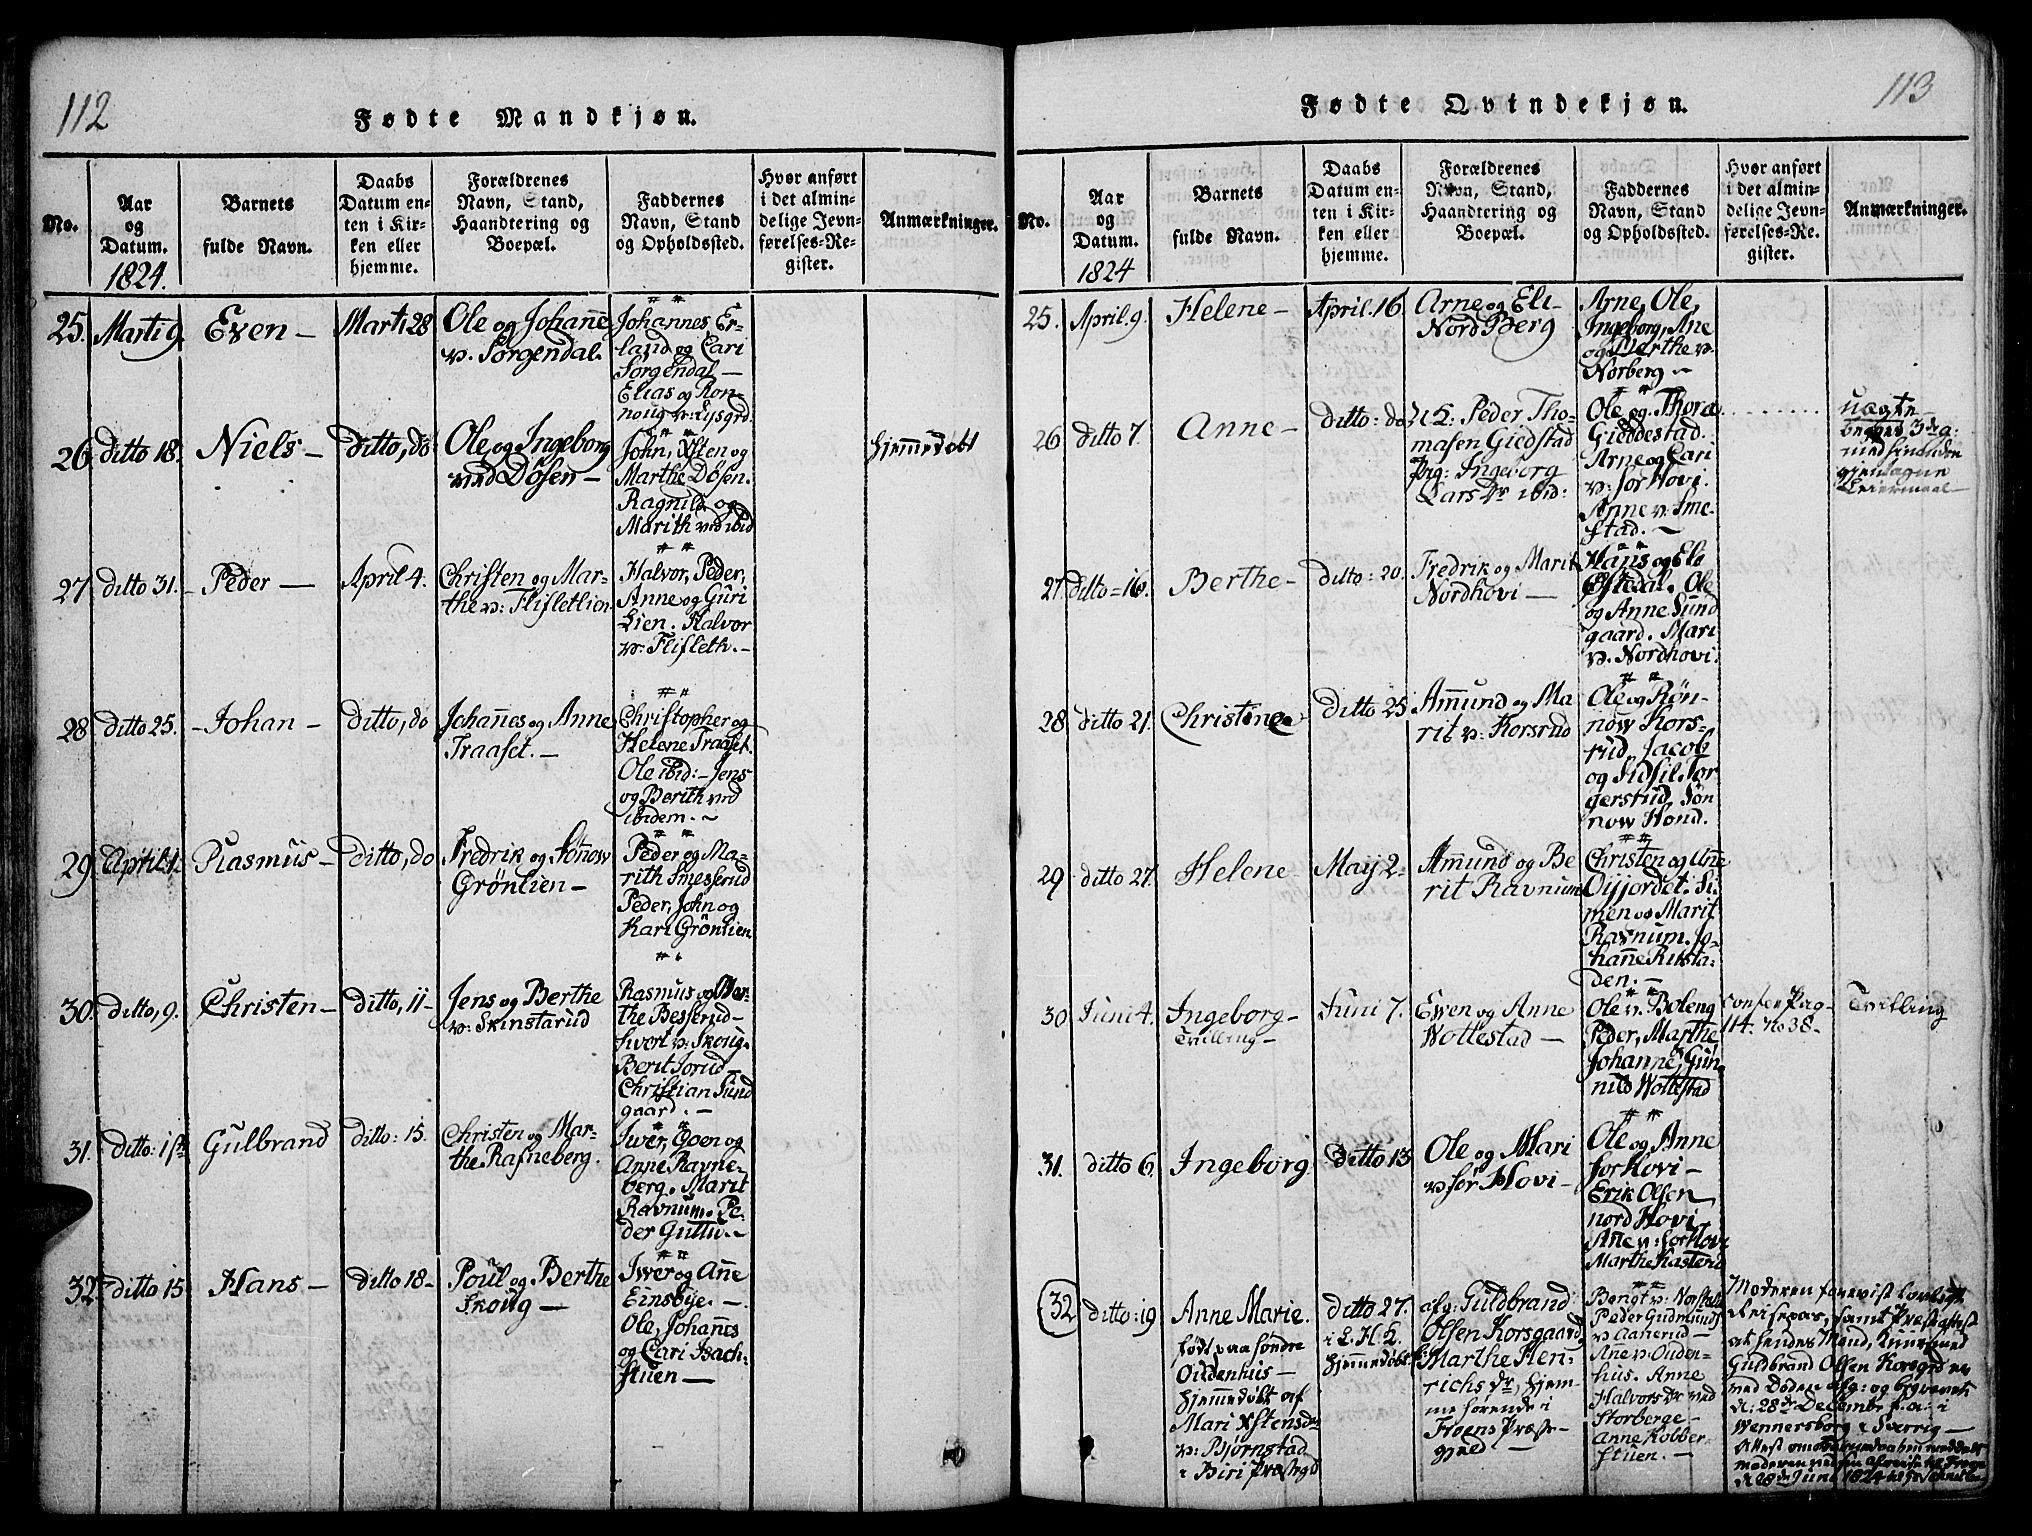 112
Fødte Mandkjøn.
No.
Aar
og
Datum.
1824.
Barnets
fulde Navn.
Daabs
Datum en-
ten i Kir-
ken eller
hjemme.
Forældrenes
Navn, Stand,
Haandtering og
Boepæl.
Faddernes
Navn, Stand
og Opholdssted.
Hvor anført
i det almin-
delige Jevn-
førelses-Re-
gister.
Anmærkninger.
25. Marti 9. Even — Marti 28
Ole og Johanne
v. Sørgendal.
Johannes Er-
land og Cari
Sørgendal —
Elias og Ron-
noug v: Lysgrd
26 ditto 18. Niels — ditto, do
Ole og Ingeborg
ved Døsen —
John, Østen og
Marthe Døsen.
Ragnild og
Marith ved ibid
Hjemmedøbt
27 ditto 31. Peder — April 4.
Christen og Mar-
the v: Flifletlien
Halvor, Peder,
Anne og Guri
Lien. Halvor
v: Flifleth. —
28 ditto 25. Johan — ditto, do
Johannes og Anne
Traaset. —
Christopher og
Helene Traaset.
Ole ibid: — Jens
og Berith ved
ibidem. ~
29 April 1. Rasmus — ditto, do
Fredrik og Sønow
Grönlien —
Peder og Ma-
rith Smesserud
Peder, John og
Kari Grönlien
30. ditto, 9. Christen — ditto, 11 —
Jens og Berthe
v: Skinstarud
Rasmus og Ber-
the Besserud —
Sivort v: Skoug.
Berit Sorud
Christian Sund
gaard. —
31. ditto: 1ste Gulbrand ditto: 15.
Christen og Mar-
the Rafneberg.
Iwer, Goen og
Anne Ravne-
berg. Marit
Ravnum. Pe-
der Guttu. —
32 ditto 15 Hans — ditto 18 —
Poul og Berthe
Skoug —
Iwer og Anne
Einsbye. —
Ole, Johannes
og Cari Bach-
stuen —
113
Fødte Qvindekjøn.
No.
Aar
og
Datum.
1824
Barnets
fulde Navn.
Daabs
Datum en-
ten i Kir-
ken eller
hjemme.
Forældrenes
Navn, Stand,
Haandtering og
Boepæl.
Faddernes
Navn, Stand
og Opholdssted.
Hvor anført
i det almin-
delige Jevn-
førelses-Re-
gister.
Anmærkninger.
25. April. 9. Helene — April. 16.
Arne og Eli
Nord Berg
Arne, Ole,
Ingeborg, Ane
og Berthe v:
Norberg —
26 ditto 7. Anne — ditto: do
Peder Tho-
masen Giedstad
Pig: Ingeborg
Lars Dr ibid:
Ole og Thora
Gieddestad.
Arne og Cari
v: Sør Hovi.
Anne v: Sme-
stad. ~
uægte
27. ditto = 16. Berthe — ditto: 20.
Fredrik og Marit
Nordhovi —
Hans og Eli
Ole
og Anne Sund
gaard. Mari
v: Nordhovi.
28 ditto 21. Christine ditto 25
Amund og Ma
rit v: Korsrud
Ole og Røn-
now Kors-
rud. Jacob
og Sidsil Tor
gerstud. Sön
now Hond.
29 ditto 27. Helene May 2 =
Amund og Be
rit Ravnum
Christen og Anne
Oijjordet. Si-
men og Marit
Ravnum. Jo-
hanne Rusta-
den. —
30 Juni 4. Ingeborg — Juni 7.
Tvilling —
Even og Anne
Wollestad —
Ole v: Boleng
Peder, Marthe
Johanne, Gun-
nild Wollestad
confer Pag
114. No 38 —
Tvilling
31. ditto 6. Ingeborg ditto 13
Ole og Mari
v Sør Hovi —
Ole og Anne
Sør Hovi —
Erik Olsen
nord Hovi
Ane v: Sør Hovi
Marthe Kasterud
32 ditto: 19
Anne Marie.
født paa søndre
Oudenhus —
Hjemmedøbt af
Mari Østensdr
v: Bjørnstad
i Biri Præstegd
ditto 27.
i L. H. K.
Hjemmedøbt
afg: Guldbrand
Olsen Korsgaard
Marthe Hen-
richs Dr, hjem-
me hørende i
Præste-
gjed —
Bengt v: Norstad
Peder Gudmunds
v: Aanerud —
Ane v: Ouden-
hus. Anne
Halvors Dr ved
Storberge —
Anne Kobber-
stuen. —
Moderen foreviist lovligt
Reisepas, samt Præsteattest
at hendes Mand,
Guldbrand Olsen Korsgrd er
ved Døden afg: og begravet
d: 28de December f. a: i
Wennersborg i Sverrig —